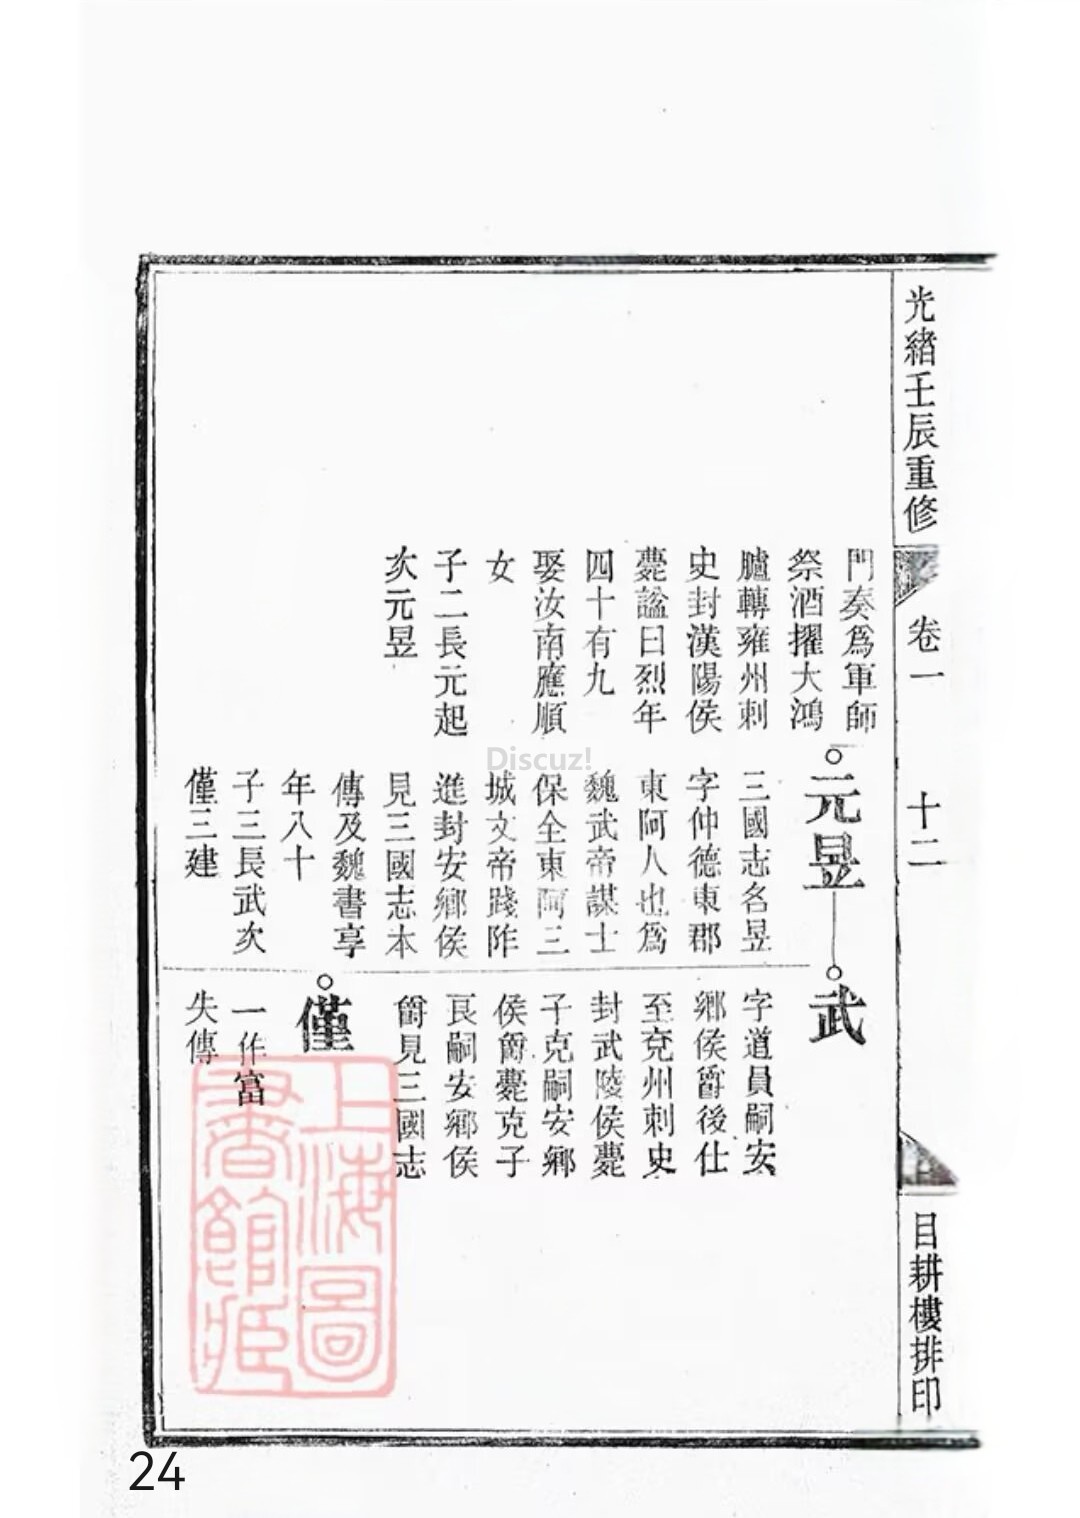 光緒壬辰重修
卷一
十二
目耕樓排印
門奏爲軍師
祭酒擢大鴻
臚轉雍州刺
史封漢陽侯
薨諡曰烈年
四十有九
娶汝南應順
女
子二長元起
次元昱
元昱
三國志名昱
字仲德東郡
東阿人也爲
魏武帝謀士
保全東阿三
城文帝踐阼
進封安鄉侯
見三國志本
傳及魏書享
年八十
子三長武次
僅三建
武
字道員嗣安
鄉侯爵後仕
至兗州刺史
封武陵侯薨
子克嗣安鄉
侯爵薨克子
良嗣安鄉侯
爵見三國志
僅
一作富
失傳
上海圖
書館藏
Discuz!
24